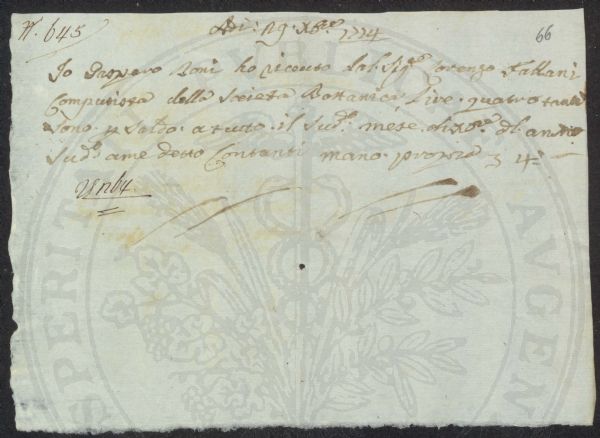 N. 645
Adi: 29. Xbre. 1774
66
Io Gaspero Zoni ho riceuto dal Sigre Lorenzo Fallani
Computista della Società Bottanica Lire quatro tanti
sono p saldo a tutto il sudo mese di Xbre. dl anno
sudo a me detto Contanti mano propria 4
PERITA
AVGEN